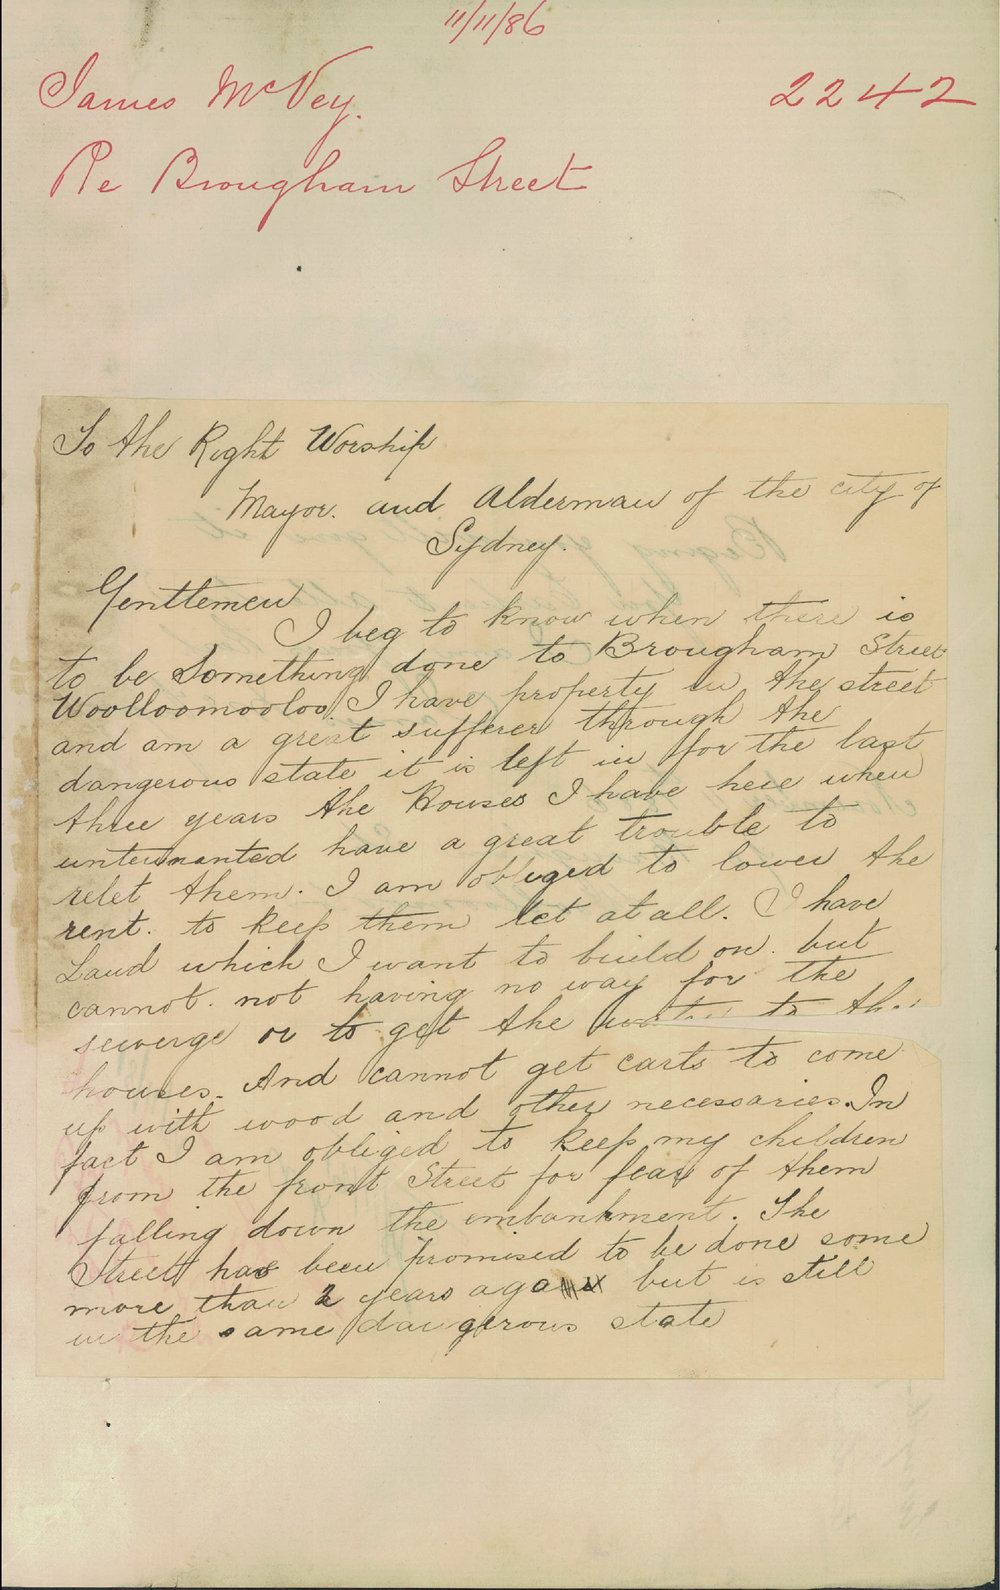 11/11/86
James McVey. 2242
Re Brougham Street
To the Right Worship
Mayor. and Alderman of the city of
Sydney.
Gentlemen
I beg to know when there is
to be Something done to Brougham Street
Woolloomooloo. I have property in the street
and am a great sufferer through the
dangerous state it is left in for the last
three years the Houses I have here when
untennanted have a great trouble to
relet them. I am obliged to lower the
rent. to keep them let at all. I have
Land which I want to build on. but
cannot. not having no way for the
sewerge or to get the water to the
houses. And cannot get carts to come
up with wood and other necessaries. In
fact I am obliged to keep my children
from the front Street for fear of them
falling down the embankment. The
Street has been promised to be done some
more than 2 years ago but is still
in the same dangerous state